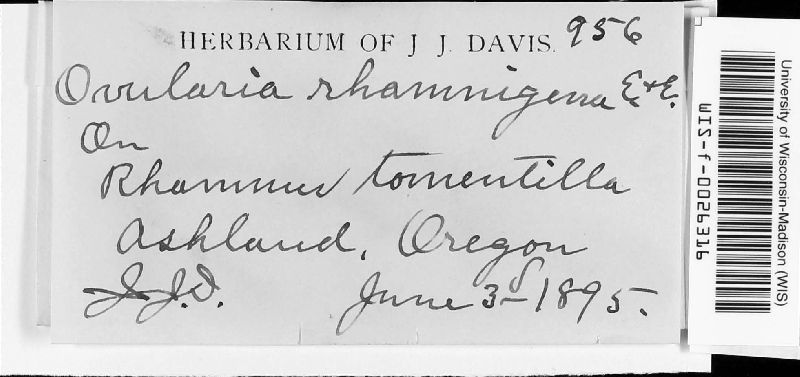 HERBARIUM OF J J. DAVIS. 956
Ovularia rhamnigena E & E.
On
Rhamnus tomentilla
Ashland, Oregon
J.J.D. June 3d 1895.
University of Wisconsin-Madison (WIS)
WIS-f-0026316